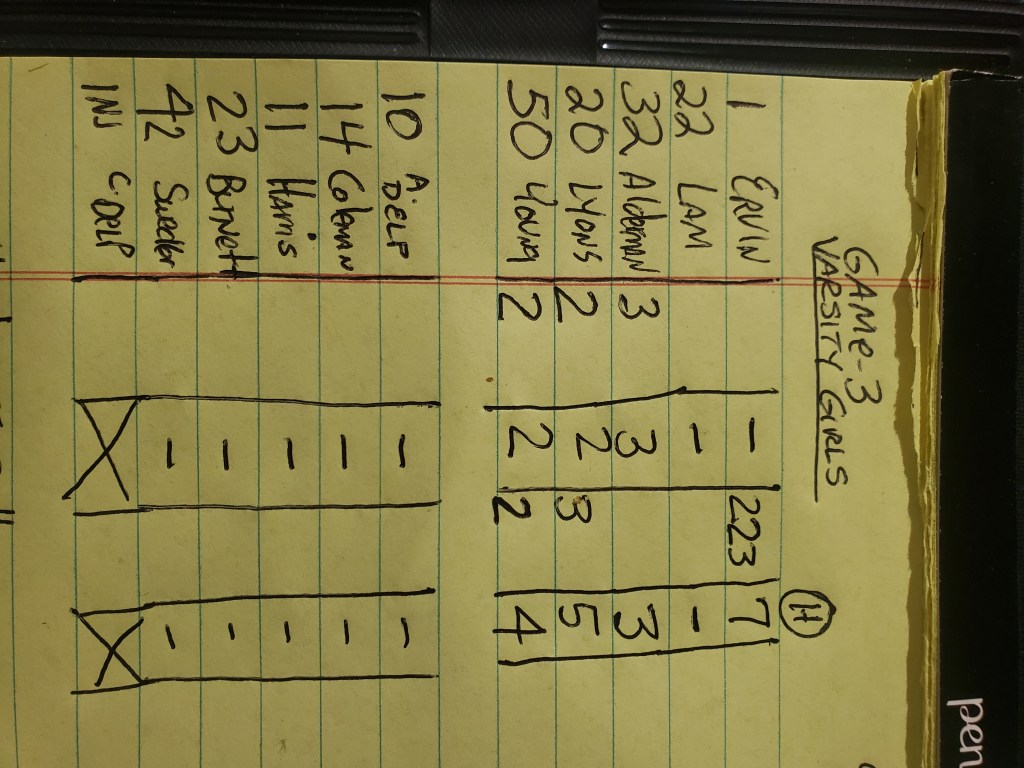 GAME-3
VARSITY GIRLS
H
1 ERVIN - 223 7
22 LAM - -
32 Alderman 3 3 3
20 LYONS 2 2 3 5
50 YOUNG 2 2 2 4
10 A. DELP - -
14 Coleman - -
11 Harris - -
23 Birnett - -
42 - -
INJ C. DELP X X
pen